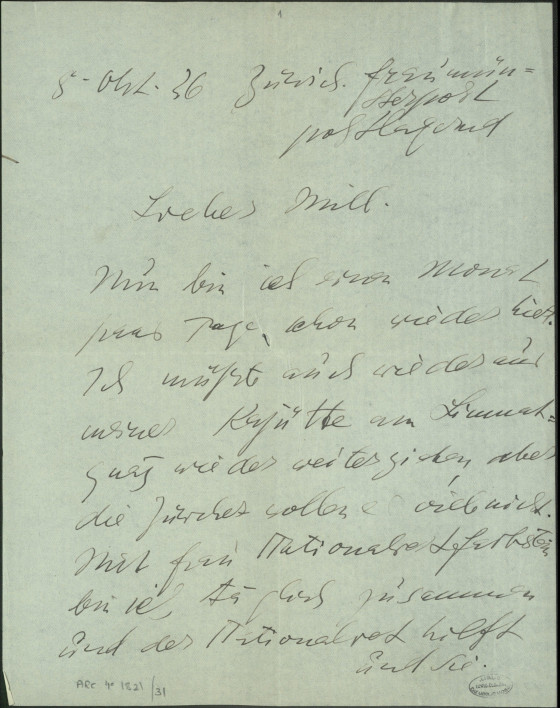 5. Okt. 36 Zürich. Fraumün=
sterpost
postlagernd
Liebes Mill.
Nun bin ich einen Monat
paar Tage, schon wieder hier.
Ich müßte auch wieder aus
meiner Kajütte am Limmat=
quai wieder weiterziehen, aber
die Zürcher wollen viel nicht.
Mit Frau Nationalrat
bin ich täglich zusammen
und der Nationalrat hilft
und sie.
ARC 4° 1821/31